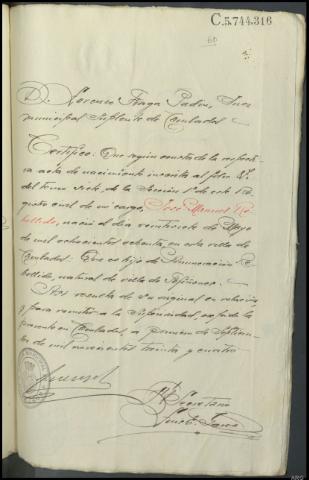 C.5.744.316
60
D. Lorenzo Fraga Padin, Juez
municipal Suplente de Cambados
Certifico: Que según consta de la respecti-
va acta de nacimiento inscrita al folio
del tomo siete, de la Sección 1ª de este Re-
gistro civil de mi cargo, José Manuel Re-
bollido, nació el día veintisiete de Mayo
de mil ochocientos ochenta, en esta villa de
Cambados: Que es hijo de Re-
bollido, natural de villa de
Así resulta de su original en relación
y para remitir a la Superioridad, expido la
presente en Cambados, a primero de Septiem-
bre de mil novecientos treinta y cuatro
Secretario
ARG